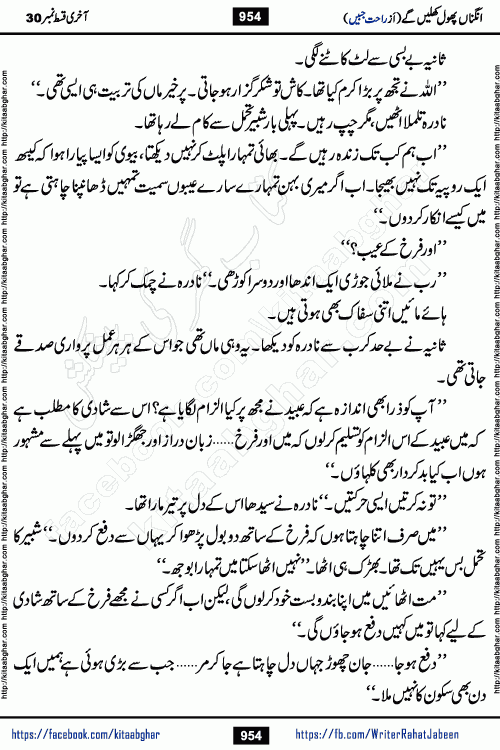 انگناں پھول کھلیں گے (از راحت جبیں)
954
آخری قسط نمبر 30
ثانیہ بے بسی سے لٹ کاٹنے لگی۔
’’اللہ نے تجھ پر بڑا کرم کیا تھا۔ کاش تو شکر گزار ہو جاتی۔ پر خیر ماں کی تربیت ہی ایسی تھی۔‘‘
نادرہ تلملا اٹھیں، مگر چپ رہیں۔ پہلی بار شبیر تحمل سے کام لے رہا تھا۔
’’اب ہم کب تک زندہ رہیں گے۔ بھائی تمہارا پلٹ کر نہیں دیکھتا، بیوی کو ایسا پیارا ہوا کہ کبھی
ایک روپیہ تک نہیں بھیجا۔ اب اگر میری بہن تمہارے سارے عیبوں سمیت تمہیں ڈھانپنا چاہتی ہے تو
میں کیسے انکار کردوں۔‘‘
’’اور فرخ کے عیب؟‘‘
’’رب نے ملائی جوڑی ایک اندھا اور دوسرا کوڑھی۔‘‘ نادرہ نے چمک کر کہا۔
ہائے مائیں اتنی سفاک بھی ہوتی ہیں۔
ثانیہ نے بے حد کرب سے نادرہ کو دیکھا۔ یہ وہی ماں تھی جو اس کے ہر ہر عمل پر واری صدقے
جاتی تھی۔
’’آپ کو ذرا بھی اندازہ ہے کہ عبید نے مجھ پر کیا الزام لگایا ہے؟ اس سے شادی کا مطلب ہے
کہ میں عبید کے اس الزام کو تسلیم کرلوں کہ میں اور فرخ...... زبان دراز اور جھگڑالو تو میں پہلے سے مشہور
ہوں اب کیا بدکردار بھی کہلاؤں۔‘‘
’’تو نہ کرتیں ایسی حرکتیں۔‘‘ نادرہ نے سیدھا اس کے دل پر تیر مارا تھا۔
’’میں صرف اتنا چاہتا ہوں کہ فرخ کے ساتھ دو بول پڑھوا کر یہاں سے دفع کردوں۔‘‘ شبیر کا
تحمل بس یہیں تک تھا۔ بھڑک ہی اٹھا۔ ’’نہیں اٹھا سکتا میں تمہارا بوجھ۔‘‘
’’مت اٹھائیں میں اپنا بندوبست خود کرلوں گی، لیکن اب اگر کسی نے مجھے فرخ کے ساتھ شادی
کے لیے کہا تو میں کہیں دفع ہو جاؤں گی۔‘‘
’’دفع ہو جا...... جان چھوڑ جہاں دل چاہتا ہے جا کر مر...... جب سے بڑی ہوئی ہے ہمیں ایک
دن بھی سکون کا نہیں ملا۔‘‘
https://facebook.com/kitaabghar
954
https://fb.com/WriterRahatJabeen